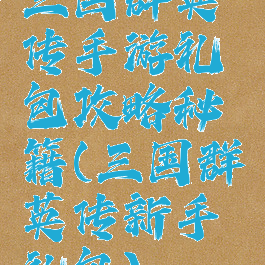 三国群英
传手游礼
包攻略秘
籍(三国群
英传新手
礼包)